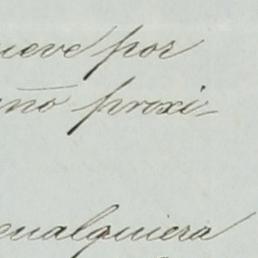 ueve por
año proxi-
cualquiera